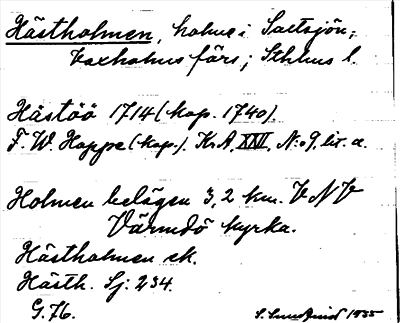 Hästholmen, holme i Saltsjön,
Vaxholms förs; Sthlms l.
Hästöö 1714 (kop. 1740).
F. W. Hoppe (kop.). KrA, XXVI, N:o 9, lit. a.
Holmen belägen 3,2 km. VNV
Värmdö kyrka.
Hästholmen ek.
Hästh. Sj: 234.
G. 76.
S. 1935